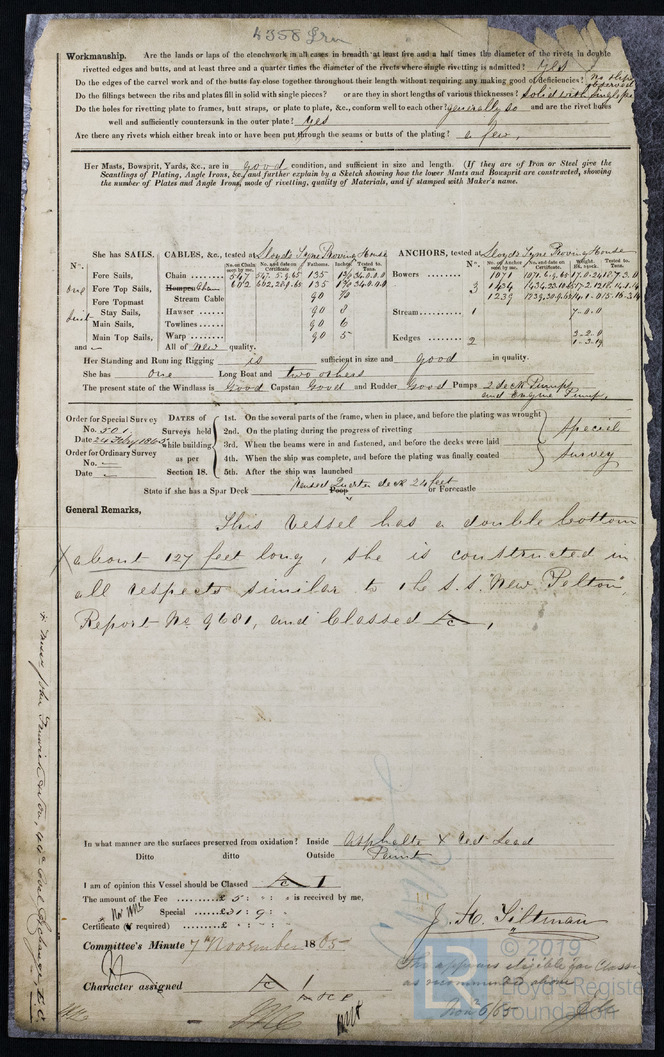 4358 Irn
Workmanship. Are the lands or laps of the clenchwork in all cases in breadth at least five and a half times the diameter of the rivets in double
rivetted edges and butts, and at least three and a quarter times the diameter of the rivets where single rivetting is admitted? Yes
Do the edges of the carvel work and of the butts lay close together throughout their length without requiring any making good of deficiencies? no slips observed
Do the fillings between the ribs and plates fill in solid with single pieces? or are they in short lengths of various thicknesses? Solid with single
Do the holes for rivetting plate to frames, butt straps, or plate to plate, &c., conform well to each other? generally so and are the rivet holes
well and sufficiently countersunk in the outer plate? Yes
Are there any rivets which either break into or have been put through the seams or butts of the plating? a few.
Her Masts, Bowsprit, Yards, &c., are in good condition, and sufficient in size and length. (If they are of Iron or Steel give the
Scantlings of Plating, Angle Irons, &c., and further explain by a Sketch showing how the lower Masts and Bowsprit are constructed, showing
the number of Plates and Angle Irons, mode of rivetting, quality of Materials, and if stamped with Maker's name.
She has SAILS. CABLES, &c., tested at Lloyds Tyne Proving House ANCHORS, tested at Lloyds Tyne Proving House
No. No. on Chain seen by me. No. and date on Certificate Fathoms. Inches. Tested to. Tons. No. No. of Anchor seen by me. No. and date on Certificate. Weight. Ex. stock. Tested to. Tons.
Fore Sails, Chain 547 547. 5.9.65 135 34.0.0.0 Bowers 1071
One Fore Top Sails, Hempen Cha 602 135 34.0.0.0 3 1434
Fore Topmast Stream Cable 90 1239
suit Stay Sails, Hawser 90 8 Stream 1 7-0-0
Main Sails, Towlines 90 6
Main Top Sails, Warp 90 5 Kedges 2 3-2-0
and — All of New quality. 1-3-19
Her Standing and Running Rigging is sufficient in size and good in quality.
She has One Long Boat and two others
The present state of the Windlass is Good Capstan Good and Rudder Good Pumps 2 deck Pumps
and Engine Pump,
Order for Special Survey
No. 501
Date 24 Feby 1865
Order for Ordinary Survey
No. —
Date —
DATES of Surveys held while building as per Section 18.
1st. On the several parts of the frame, when in place, and before the plating was wrought
2nd. On the plating during the progress of rivetting
3rd. When the beams were in and fastened, and before the decks were laid
4th. When the ship was complete, and before the plating was finally coated
5th. After the ship was launched
Special
Survey
State if she has a Spar Deck Raised Quarter deck 24 feet Poop or Forecastle
General Remarks,
This vessel has a double bottom
X about 127 feet long, she is constructed in
all respects similar to the S.S. "New Pelton",
Report No 9681, and Classed A/c,
In what manner are the surfaces preserved from oxidation? Inside Asphalte & red Lead
Ditto ditto Outside Paint
I am of opinion this Vessel should be Classed A/c 1
The amount of the Fee £ 5 : : is received by me,
Special £31 : 9 :
Certificate (if required) £ : :
J. H. Tiltman
Committee's Minute 7th November 1865
Character assigned A/c 1
This appears eligible for Class
as recommended above
Novr 6/65
© 2019
Lloyd's Register
Foundation
LR